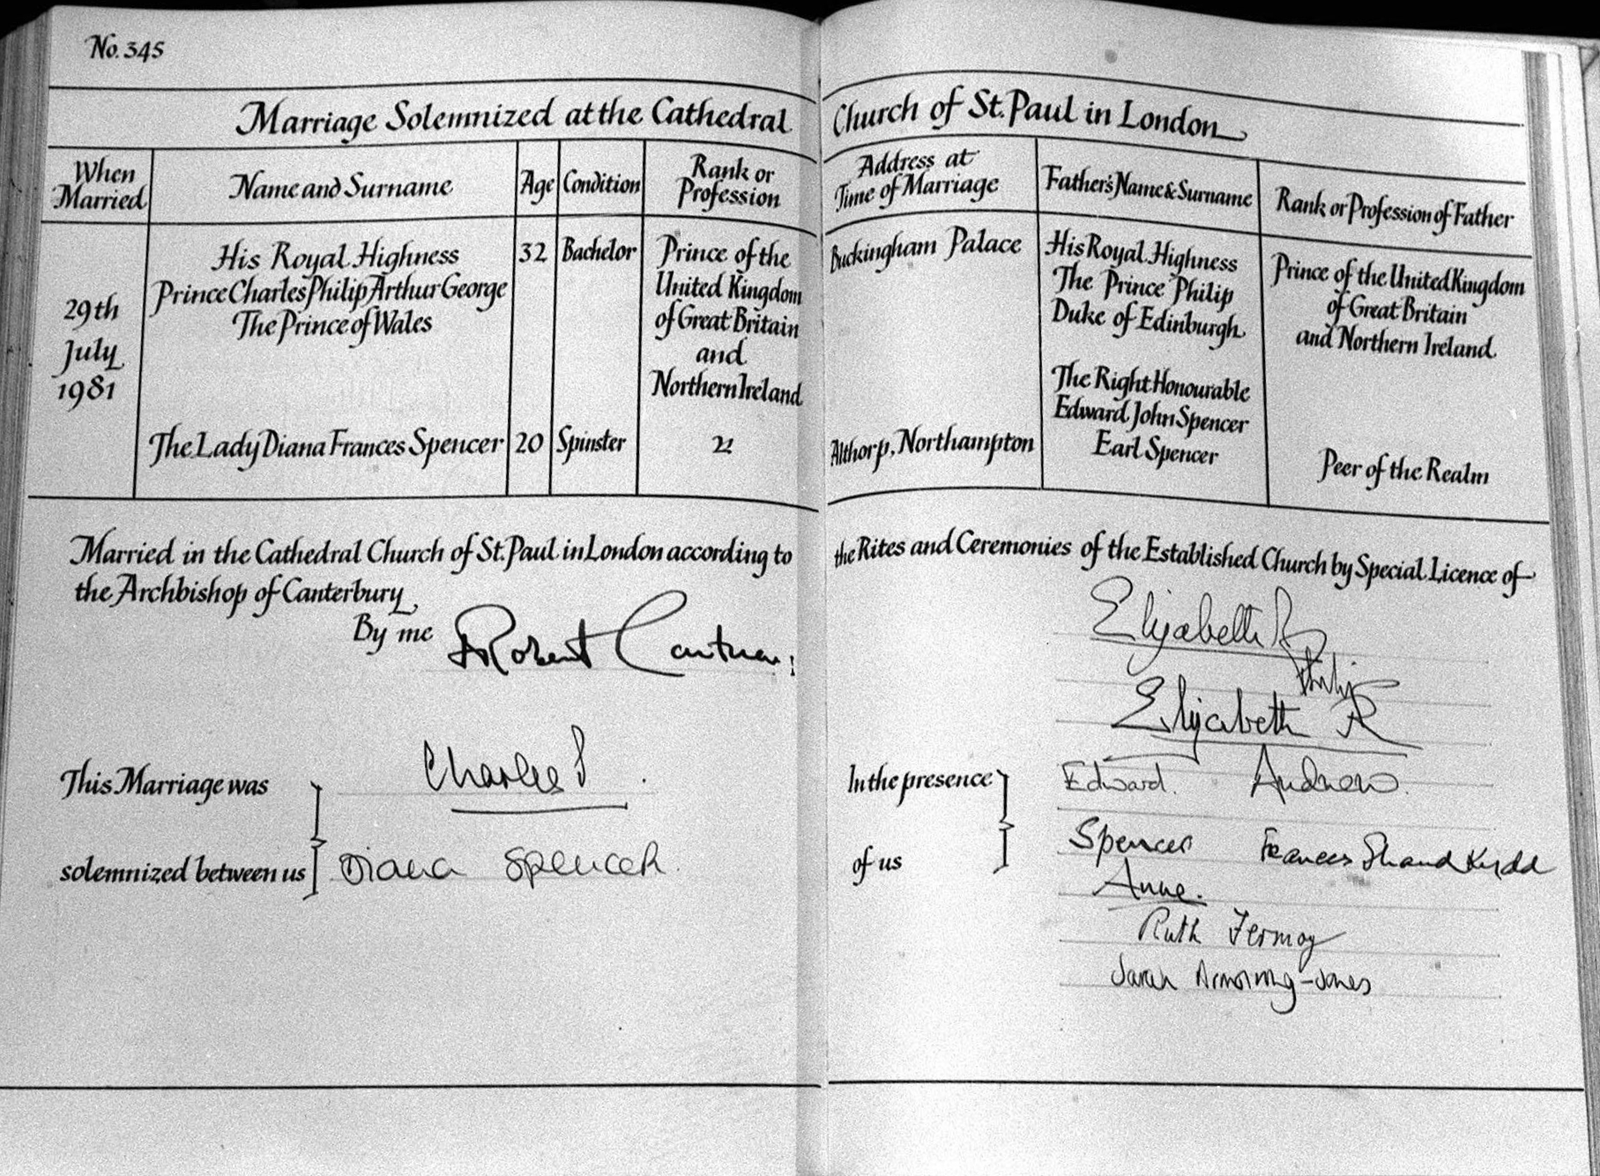 No. 345
Marriage Solemnized at the Cathedral Church of St. Paul in London
When Married
Name and Surname
Age
Condition
Rank or Profession
Address at Time of Marriage
Father's Name & Surname
Rank or Profession of Father
29th
July
1981
His Royal Highness
Prince Charles Philip Arthur George
The Prince of Wales
32
Bachelor
Prince of the
United Kingdom
of Great Britain
and
Northern Ireland
Buckingham Palace
His Royal Highness
The Prince Philip
Duke of Edinburgh
Prince of the United Kingdom
of Great Britain
and Northern Ireland
The Lady Diana Frances Spencer
20
Spinster
Althorp, Northampton
The Right Honourable
Edward John Spencer
Earl Spencer
Peer of the Realm
Married in the Cathedral Church of St. Paul in London according to the Rites and Ceremonies of the Established Church by Special Licence of
the Archbishop of Canterbury
By me Robert Cantuar:
This Marriage was
solemnized between us
Charles P
Diana Spencer
In the presence
of us
Elizabeth R
Philip
Elizabeth R
Edward. Andrew.
Spencer Frances Shand Kydd
Anne.
Ruth Fermoy
Sarah Armstrong-Jones